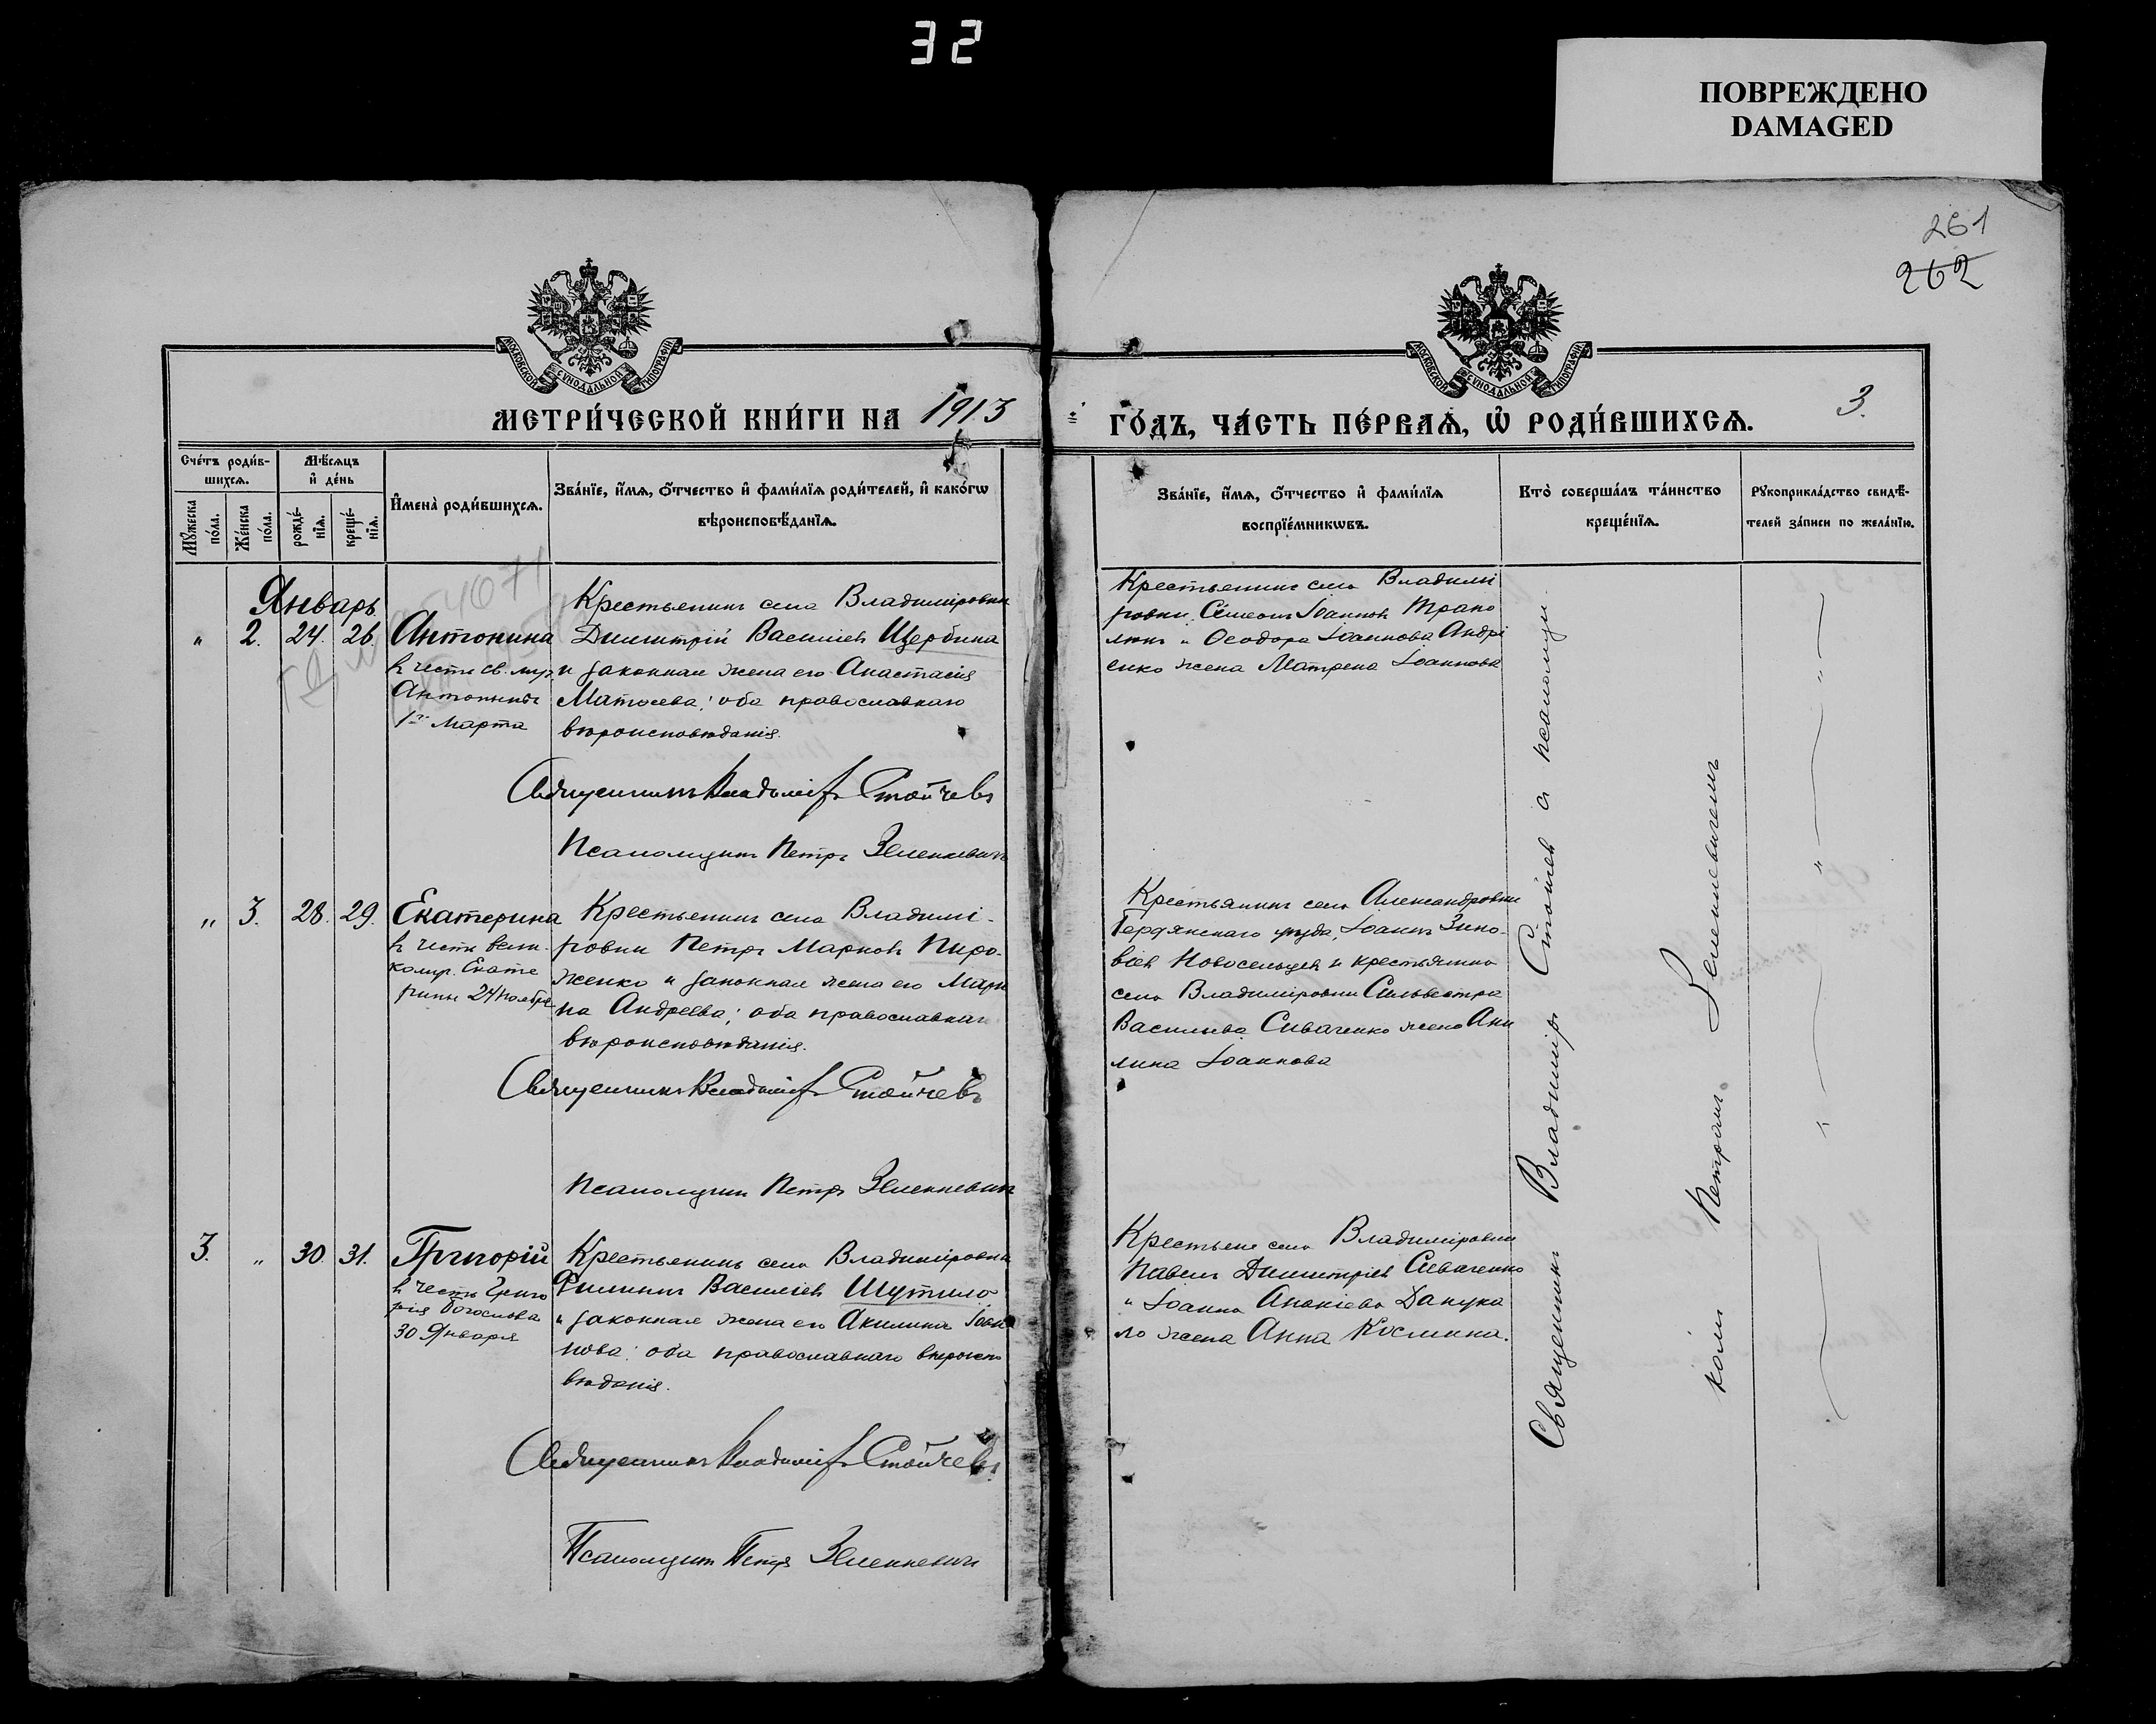 32
ПОВРЕЖДЕНО
DAMAGED
261
262
МОСКОВСКОЙ СѴНОДАЛЬНОЙ ТИПОГРАФІИ
МОСКОВСКОЙ СѴНОДАЛЬНОЙ ТИПОГРАФІИ
МЕТРИ́ЧЕСКОЙ КНИ́ГИ НА 1913
ГО́ДЪ, ЧА́СТЬ ПЕ́РВАѦ, Ѡ҆ РОДИ́ВШИХСѦ.
3.
Сче́тъ роди́в-
шихсѧ.
Мꙋ́жеска по́ла.
Же́нска по́ла.
Мѣ́сѧцъ
и҆ де́нь
рожде́-
нїѧ.
креще́-
нїѧ.
И҆мена̀ роди́вшихсѧ.
Зва́нїе, и҆́мѧ, ѻ҆́тчество и҆ фами́лїѧ роди́телей, и҆ како́гѡ
вѣроисповѣ́данїѧ.
Зва́нїе, и҆́мѧ, ѻ҆́тчество и҆ фами́лїѧ
воспрїе́мникѡвъ.
Кто̀ соверша́лъ та́инство
креще́нїѧ.
Рꙋкоприкла́дство свидѣ́-
телей за́писи по жела́нїю.
Январь
" 2. 24. 26. Антонина
в честь св. муч.
Антонины
1го Марта
Крестьянинъ села Владиміровки
Димитрій Василіев Щербина
и законная жена его Анастасія
Матѳеева; оба православнаго
вѣроисповѣданія.
Священникъ Владимір Стойчевъ
Псаломщикъ Петръ Зеленкевичъ
Крестьянинъ села Владимі
ровки, Симеонъ Іоаннов
и Ѳеодора Іоаннова Андрі
енко жена Матрена Іоаннова
" 3. 28. 29. Екатерина
в честь вели-
комуч. Екате
рины 24 ноября
Крестьянинъ села Владимі-
ровки Петръ Марков Пиро-
женко и законная жена его Мари
на Андреева; оба православнаго
вѣроисповѣданія.
Священникъ Владимір Стойчевъ
Псаломщикъ Петръ Зеленкевичъ
Крестьянинъ села Александровки
Бердянскаго уѣзда, Іоаннъ Зино-
віев Новосельцев и крестьянина
села Владиміровки Сильвестра
Васильева Сиваченко жена Аки
лина Іоаннова
3. " 30. 31. Григорій
в честь Григо
рія Богослова
30 Января
Крестьянинъ села Владиміровки
Филиппъ Василіев Шутило
и законная жена его Акилина Іоан
нова; оба православнаго вѣроиспо
вѣданія.
Священникъ Владимір Стойчевъ
Псаломщикъ Петръ Зеленкевичъ
Крестьяне села Владиміровки
Павелъ Димитріев Сиваченко
и Іоанна Ананіева Данука
ло жена Анна Космина.
Священникъ Владимір Стойчев с псаломщи-
комъ Петромъ Зеленкевичемъ